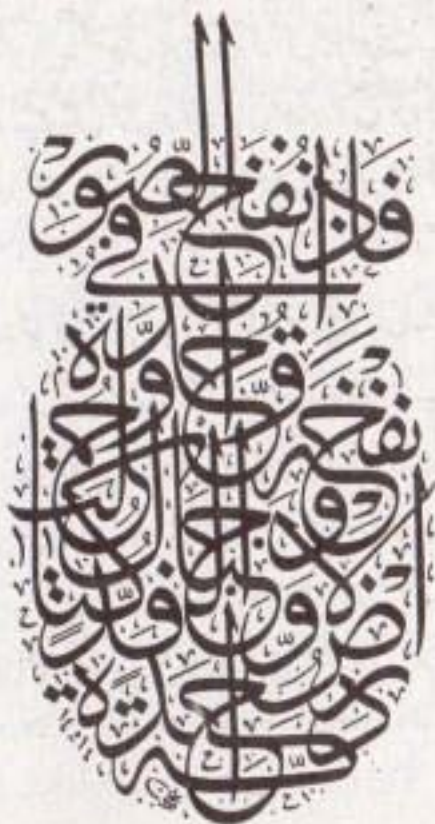 فَإِذَا نُفِخَ فِي الصُّورِ
نَفْخَةٌ وَاحِدَةٌ وَحُمِلَتِ
الْأَرْضُ وَالْجِبَالُ فَدُكَّتَا
دَكَّةً وَاحِدَةً